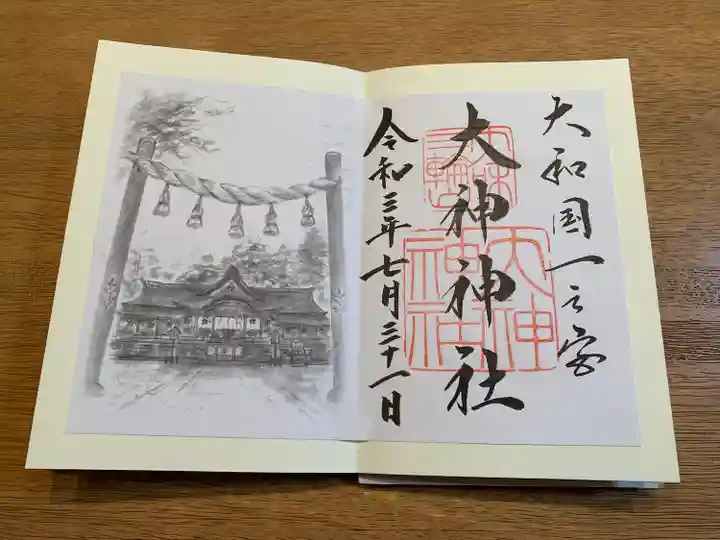 大和国一之宮
大神神社
三輪
大神
神社
令和三年七月三十一日